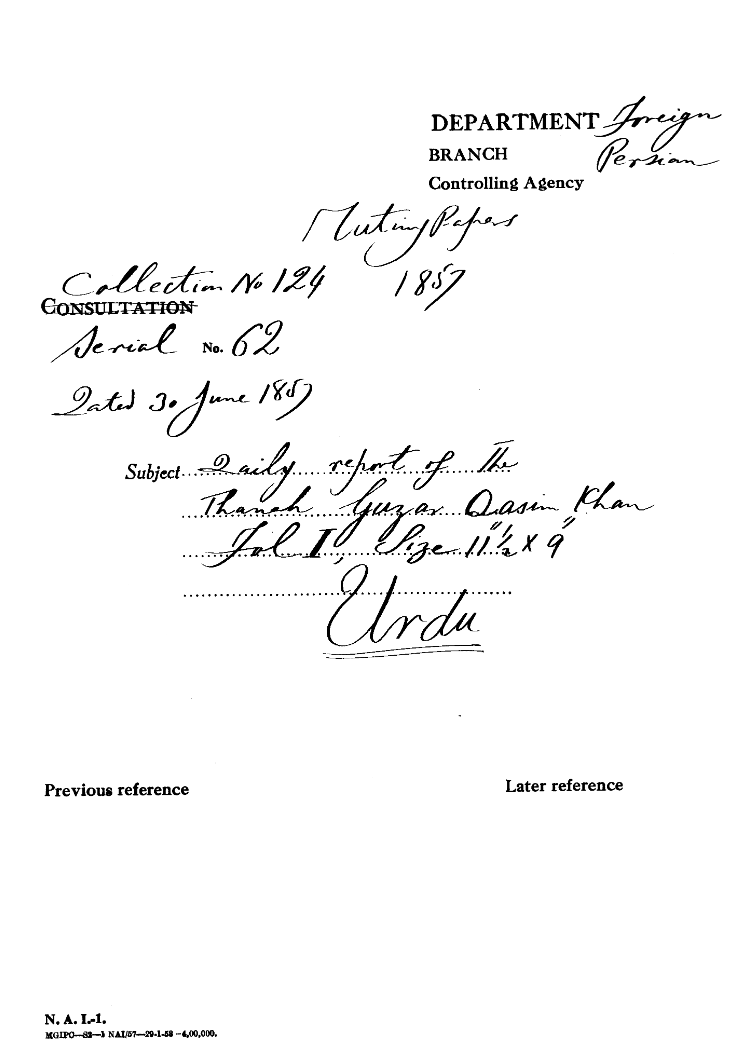 DEPARTMENT Foreign
BRANCH Persian
Controlling Agency
Mutiny Papers
Collection No 124 1857
CONSULTATION
Serial No. 62
Dated 30 June 1857
Subject Daily report of The
Thanah Guzar Qasim Khan
Fol I, Size 11½" X 9"
Urdu
Previous reference Later reference
N. A. I.-1.
MGIPC—S2—3 NAI/57—29-1-58—4,00,000.